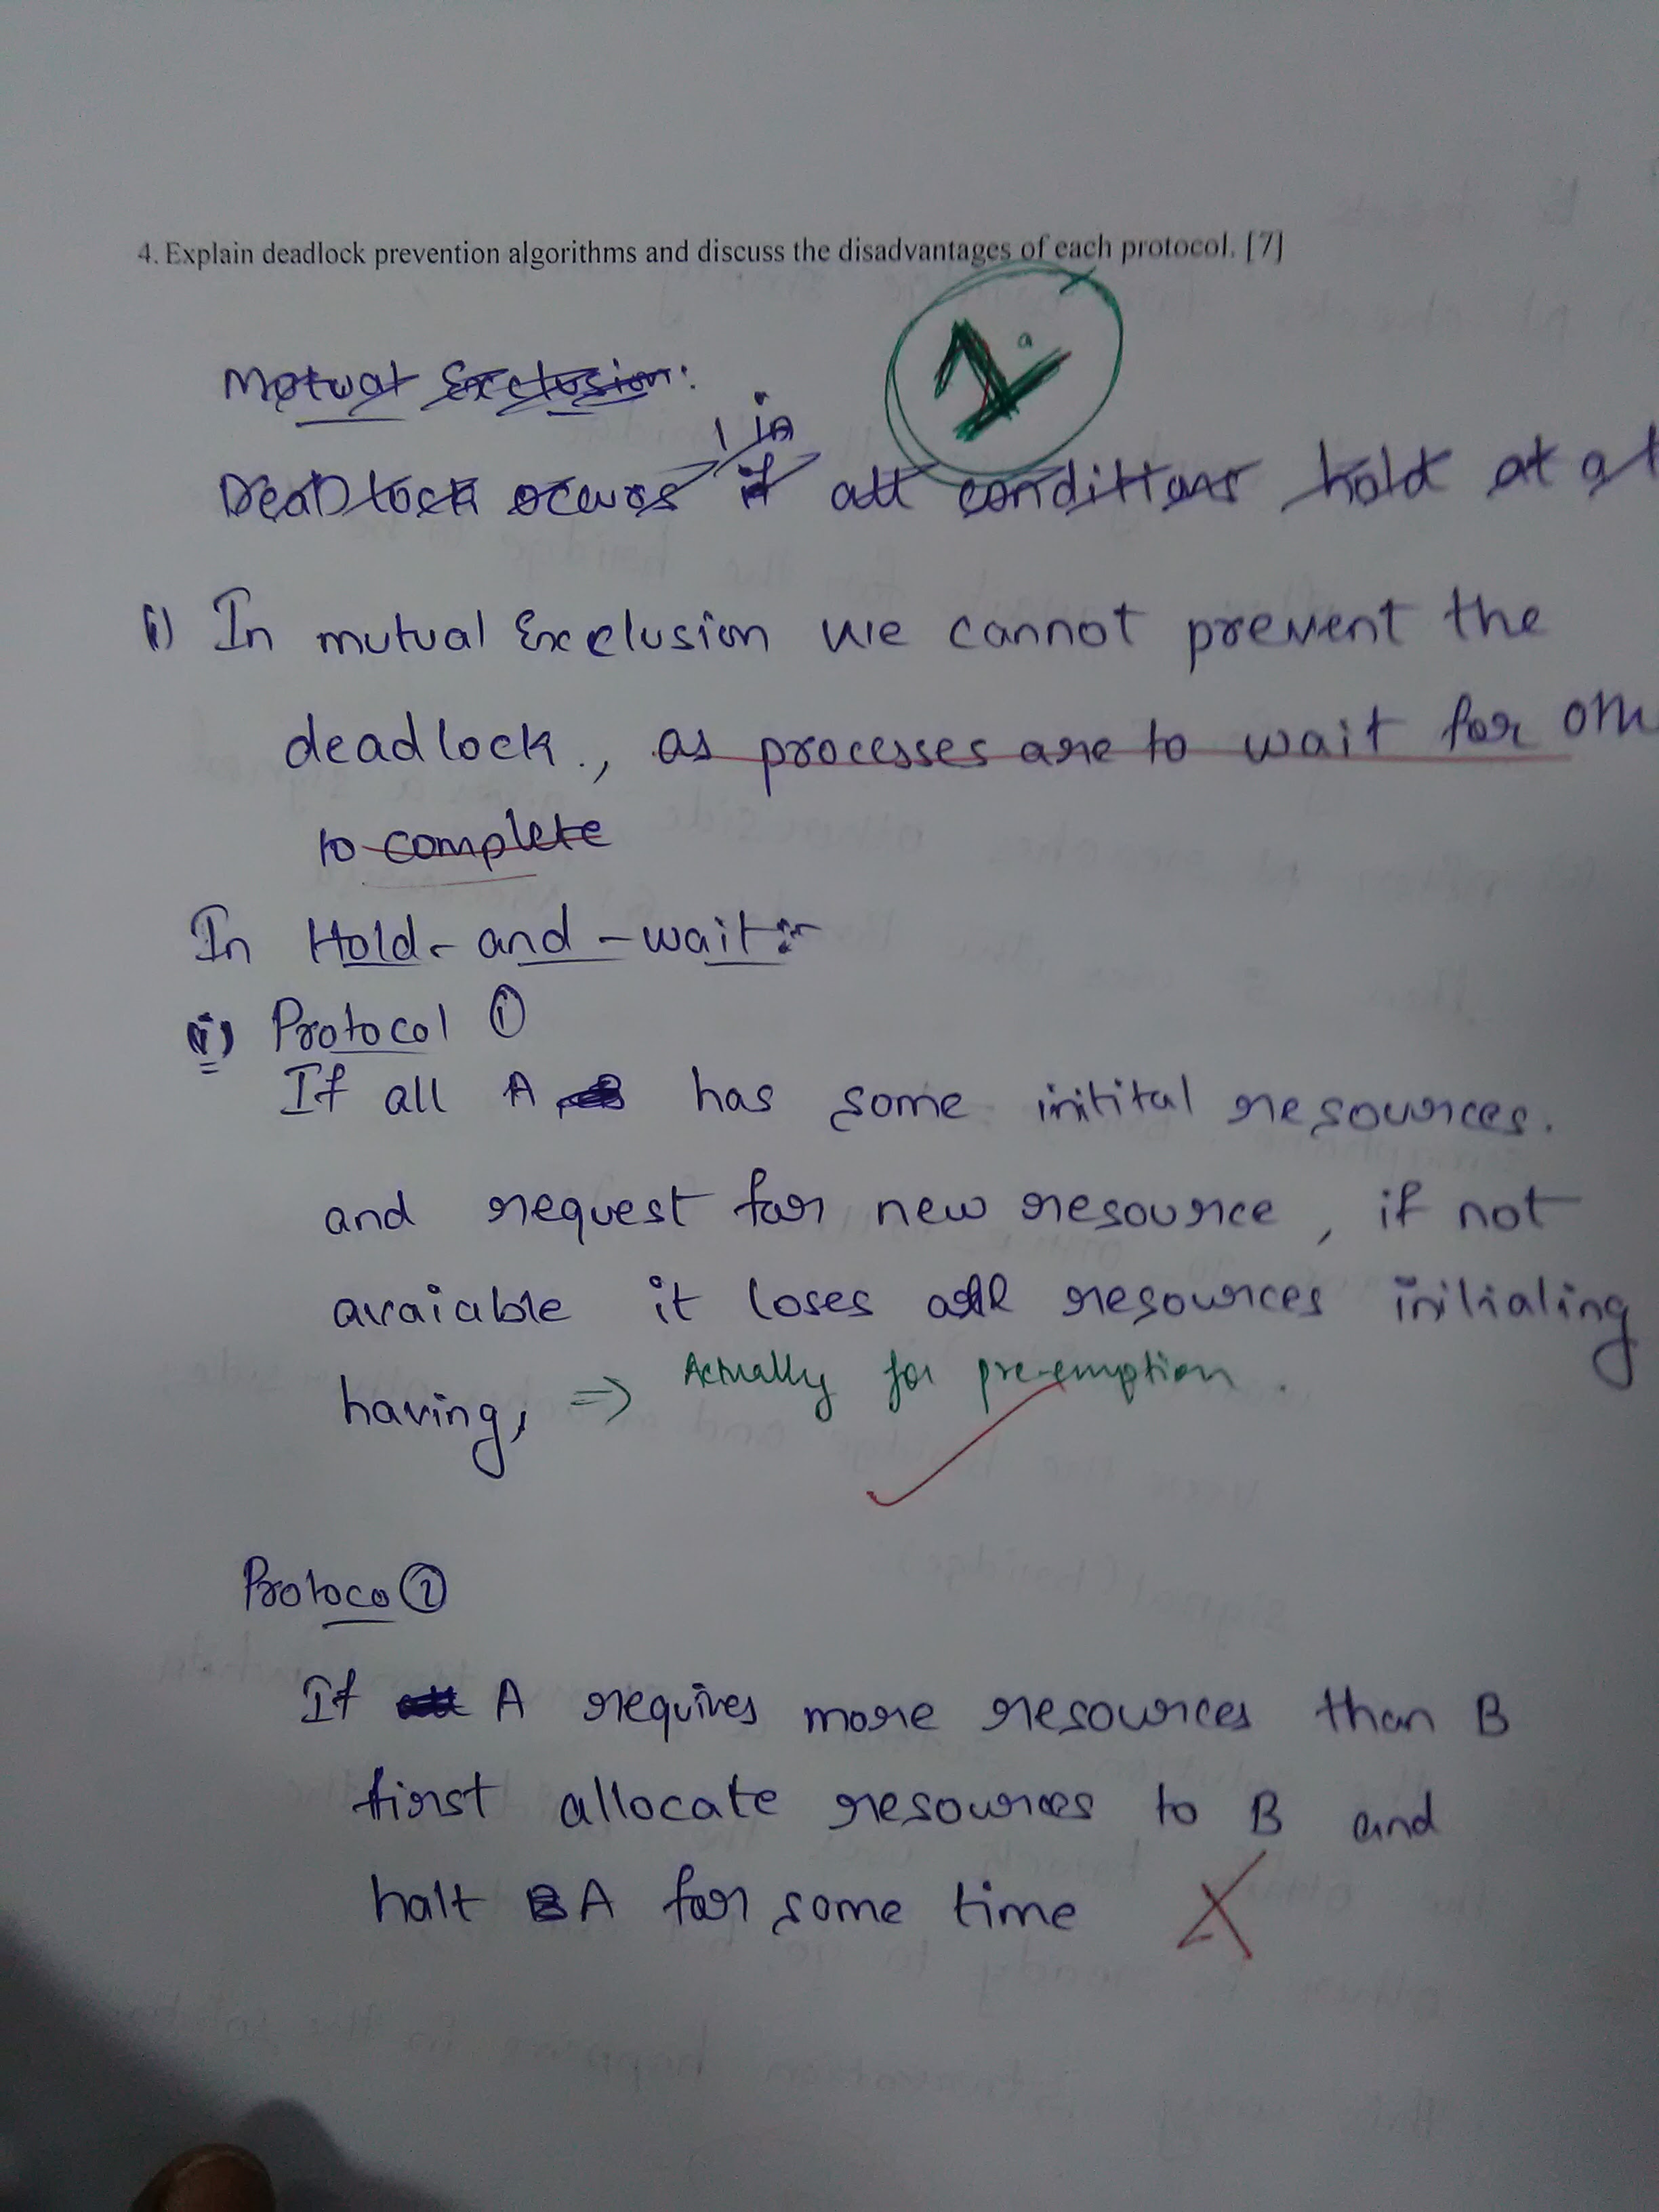 4. Explain deadlock prevention algorithms and discuss the disadvantages of each protocol. [7]
Motuat Exclosion:
1 in
DeaDlock occurs if all conditions hold at a
(i) In mutual Exclusion we cannot prevent the
deadlock., as processes are to wait for
to complete
In Hold-and-wait:-
Protocol ①
If all A has some initital resources.
and request for new resource, if not
avaiable it loses all resources initialing
having, => Actually for pre-emption.
Protoco ②
If A requires more resources than B
first allocate resources to B and
halt A for some time